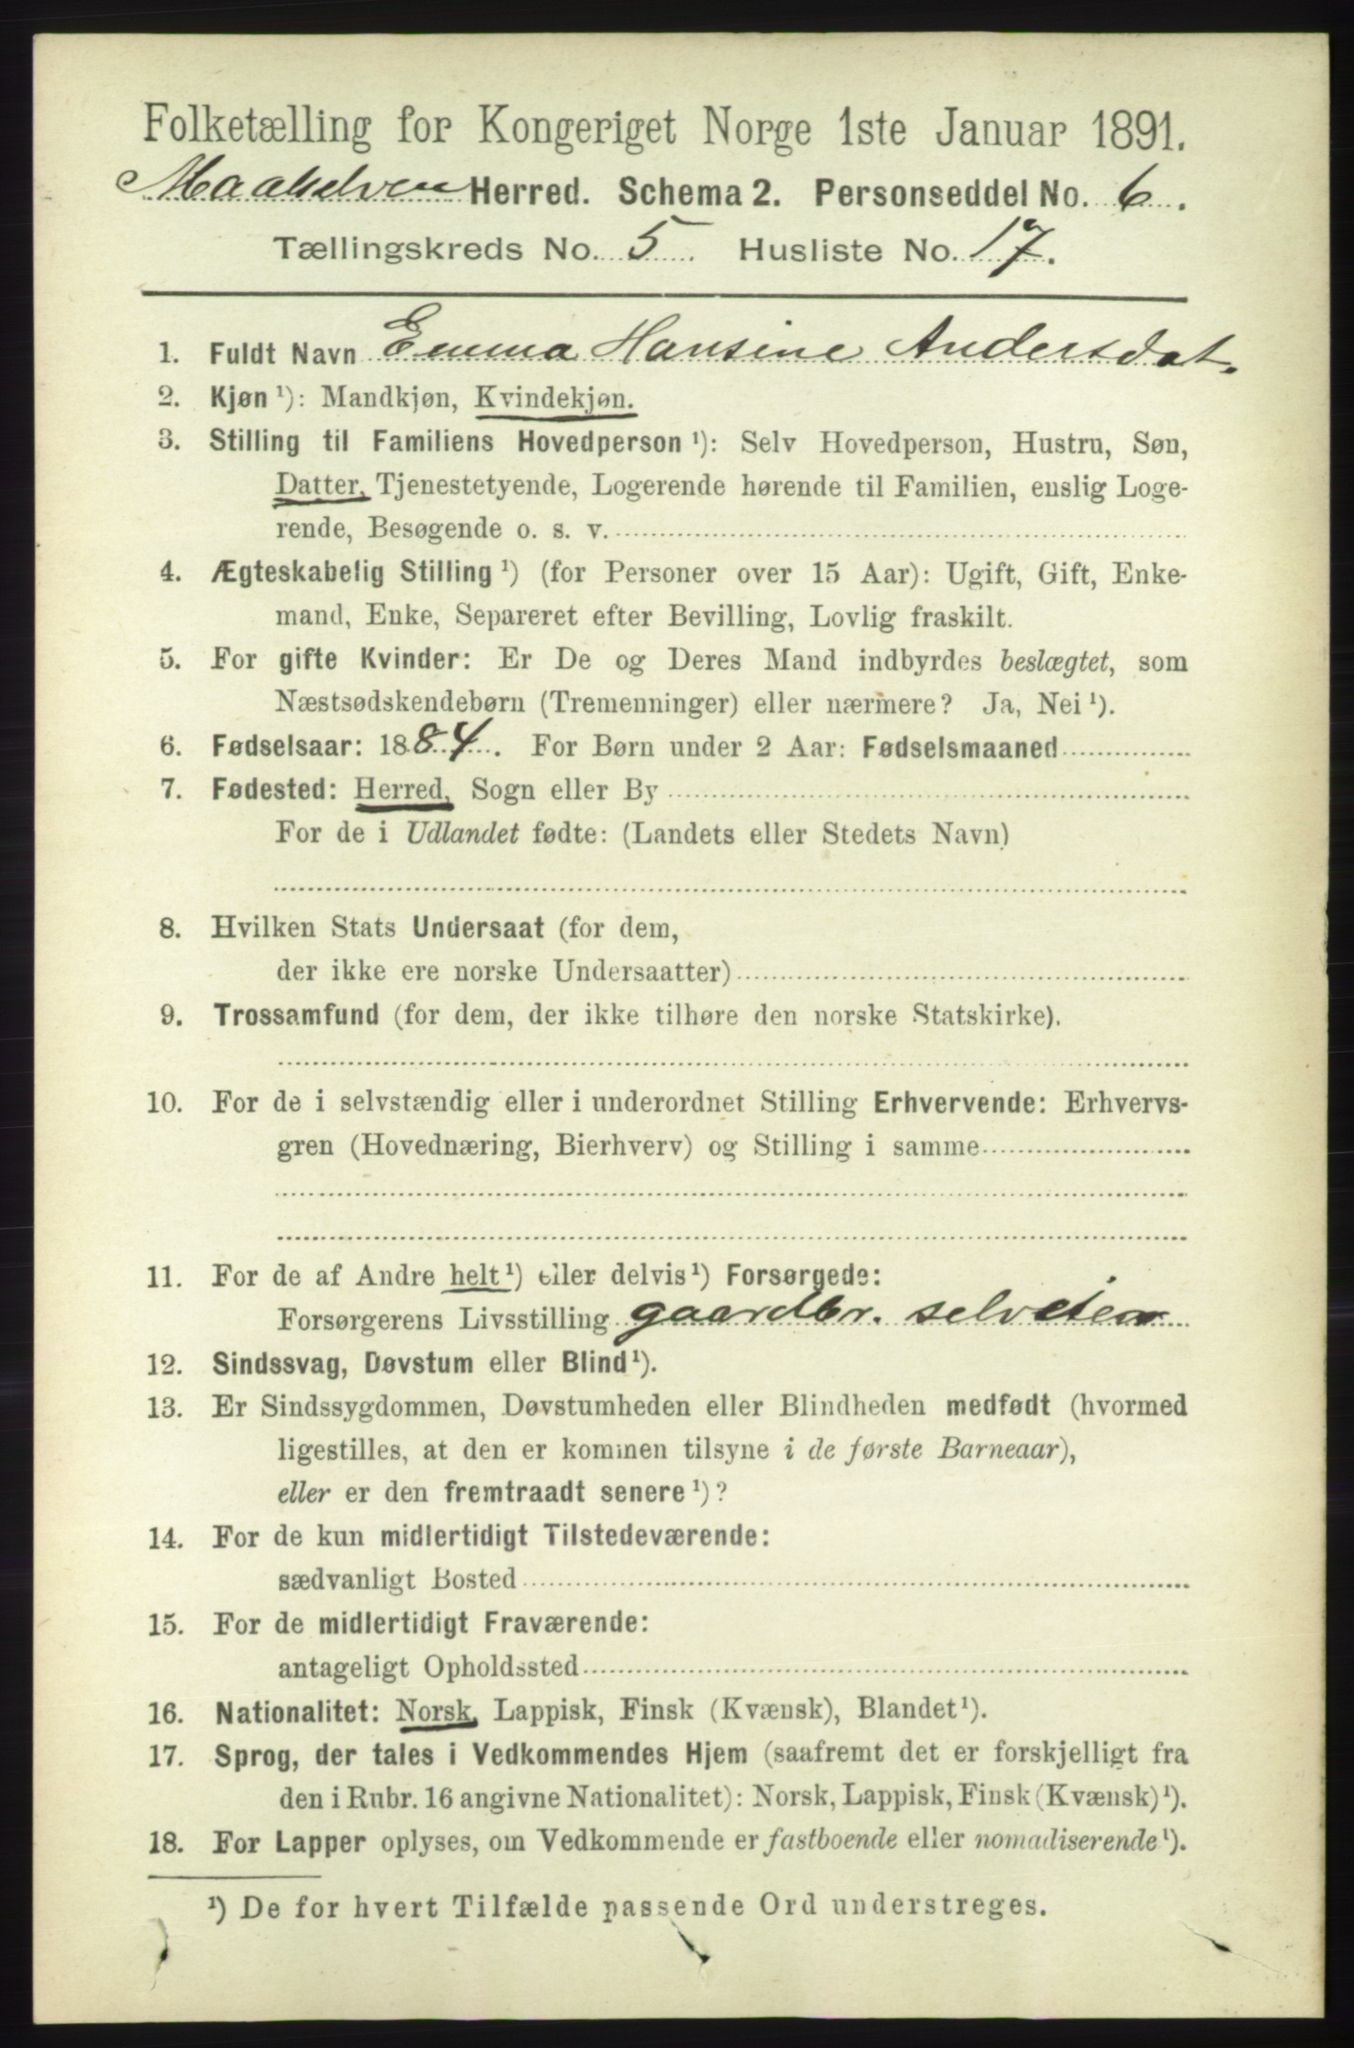 Folketælling for Kongeriget Norge 1ste Januar 1891.
Maalselven Herred. Schema 2. Personseddel No. 6.
Tællingskreds No. 5. Husliste No. 17.
1. Fuldt Navn Emma Hansine Andersdat.
2. Kjøn ¹): Mandkjøn, Kvindekjøn.
3. Stilling til Familiens Hovedperson ¹): Selv Hovedperson, Hustru, Søn,
Datter, Tjenestetyende, Logerende hørende til Familien, enslig Loge-
rende, Besøgende o. s. v.
4. Ægteskabelig Stilling ¹) (for Personer over 15 Aar): Ugift, Gift, Enke-
mand, Enke, Separeret efter Bevilling, Lovlig fraskilt.
5. For gifte Kvinder: Er De og Deres Mand indbyrdes beslægtet, som
Næstsødskendebørn (Tremenninger) eller nærmere? Ja, Nei ¹).
6. Fødselsaar: 1884. For Børn under 2 Aar: Fødselsmaaned
7. Fødested: Herred, Sogn eller By
For de i Udlandet fødte: (Landets eller Stedets Navn)
8. Hvilken Stats Undersaat (for dem,
der ikke ere norske Undersaatter)
9. Trossamfund (for dem, der ikke tilhøre den norske Statskirke).
10. For de i selvstændig eller i underordnet Stilling Erhvervende: Erhvervs-
gren (Hovednæring, Bierhverv) og Stilling i samme
11. For de af Andre helt ¹) eller delvis ¹) Forsørgede:
Forsørgerens Livsstilling gaardbr. selveier
12. Sindssvag, Døvstum eller Blind ¹).
13. Er Sindssygdommen, Døvstumheden eller Blindheden medfødt (hvormed
ligestilles, at den er kommen tilsyne i de første Barneaar),
eller er den fremtraadt senere ¹)?
14. For de kun midlertidigt Tilstedeværende:
sædvanligt Bosted
15. For de midlertidigt Fraværende:
antageligt Opholdssted
16. Nationalitet: Norsk, Lappisk, Finsk (Kvænsk), Blandet ¹).
17. Sprog, der tales i Vedkommendes Hjem (saafremt det er forskjelligt fra
den i Rubr. 16 angivne Nationalitet): Norsk, Lappisk, Finsk (Kvænsk) ¹).
18. For Lapper oplyses, om Vedkommende er fastboende eller nomadiserende ¹).
¹) De for hvert Tilfælde passende Ord understreges.